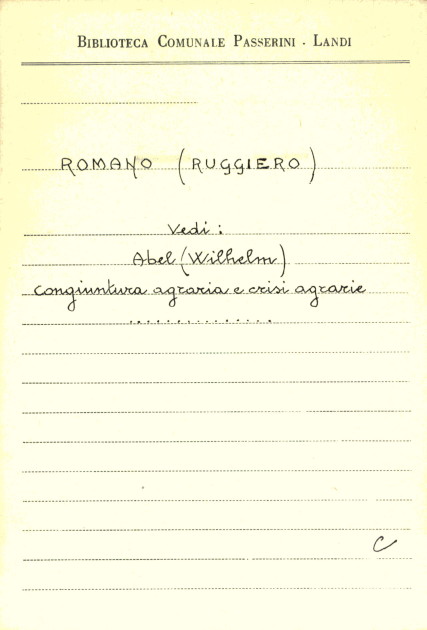 BIBLIOTECA COMUNALE PASSERINI - LANDI
ROMANO (RUGGIERO)
Vedi:
Abel (Wilhelm)
Congiuntura agraria e crisi agrarie
...............
C